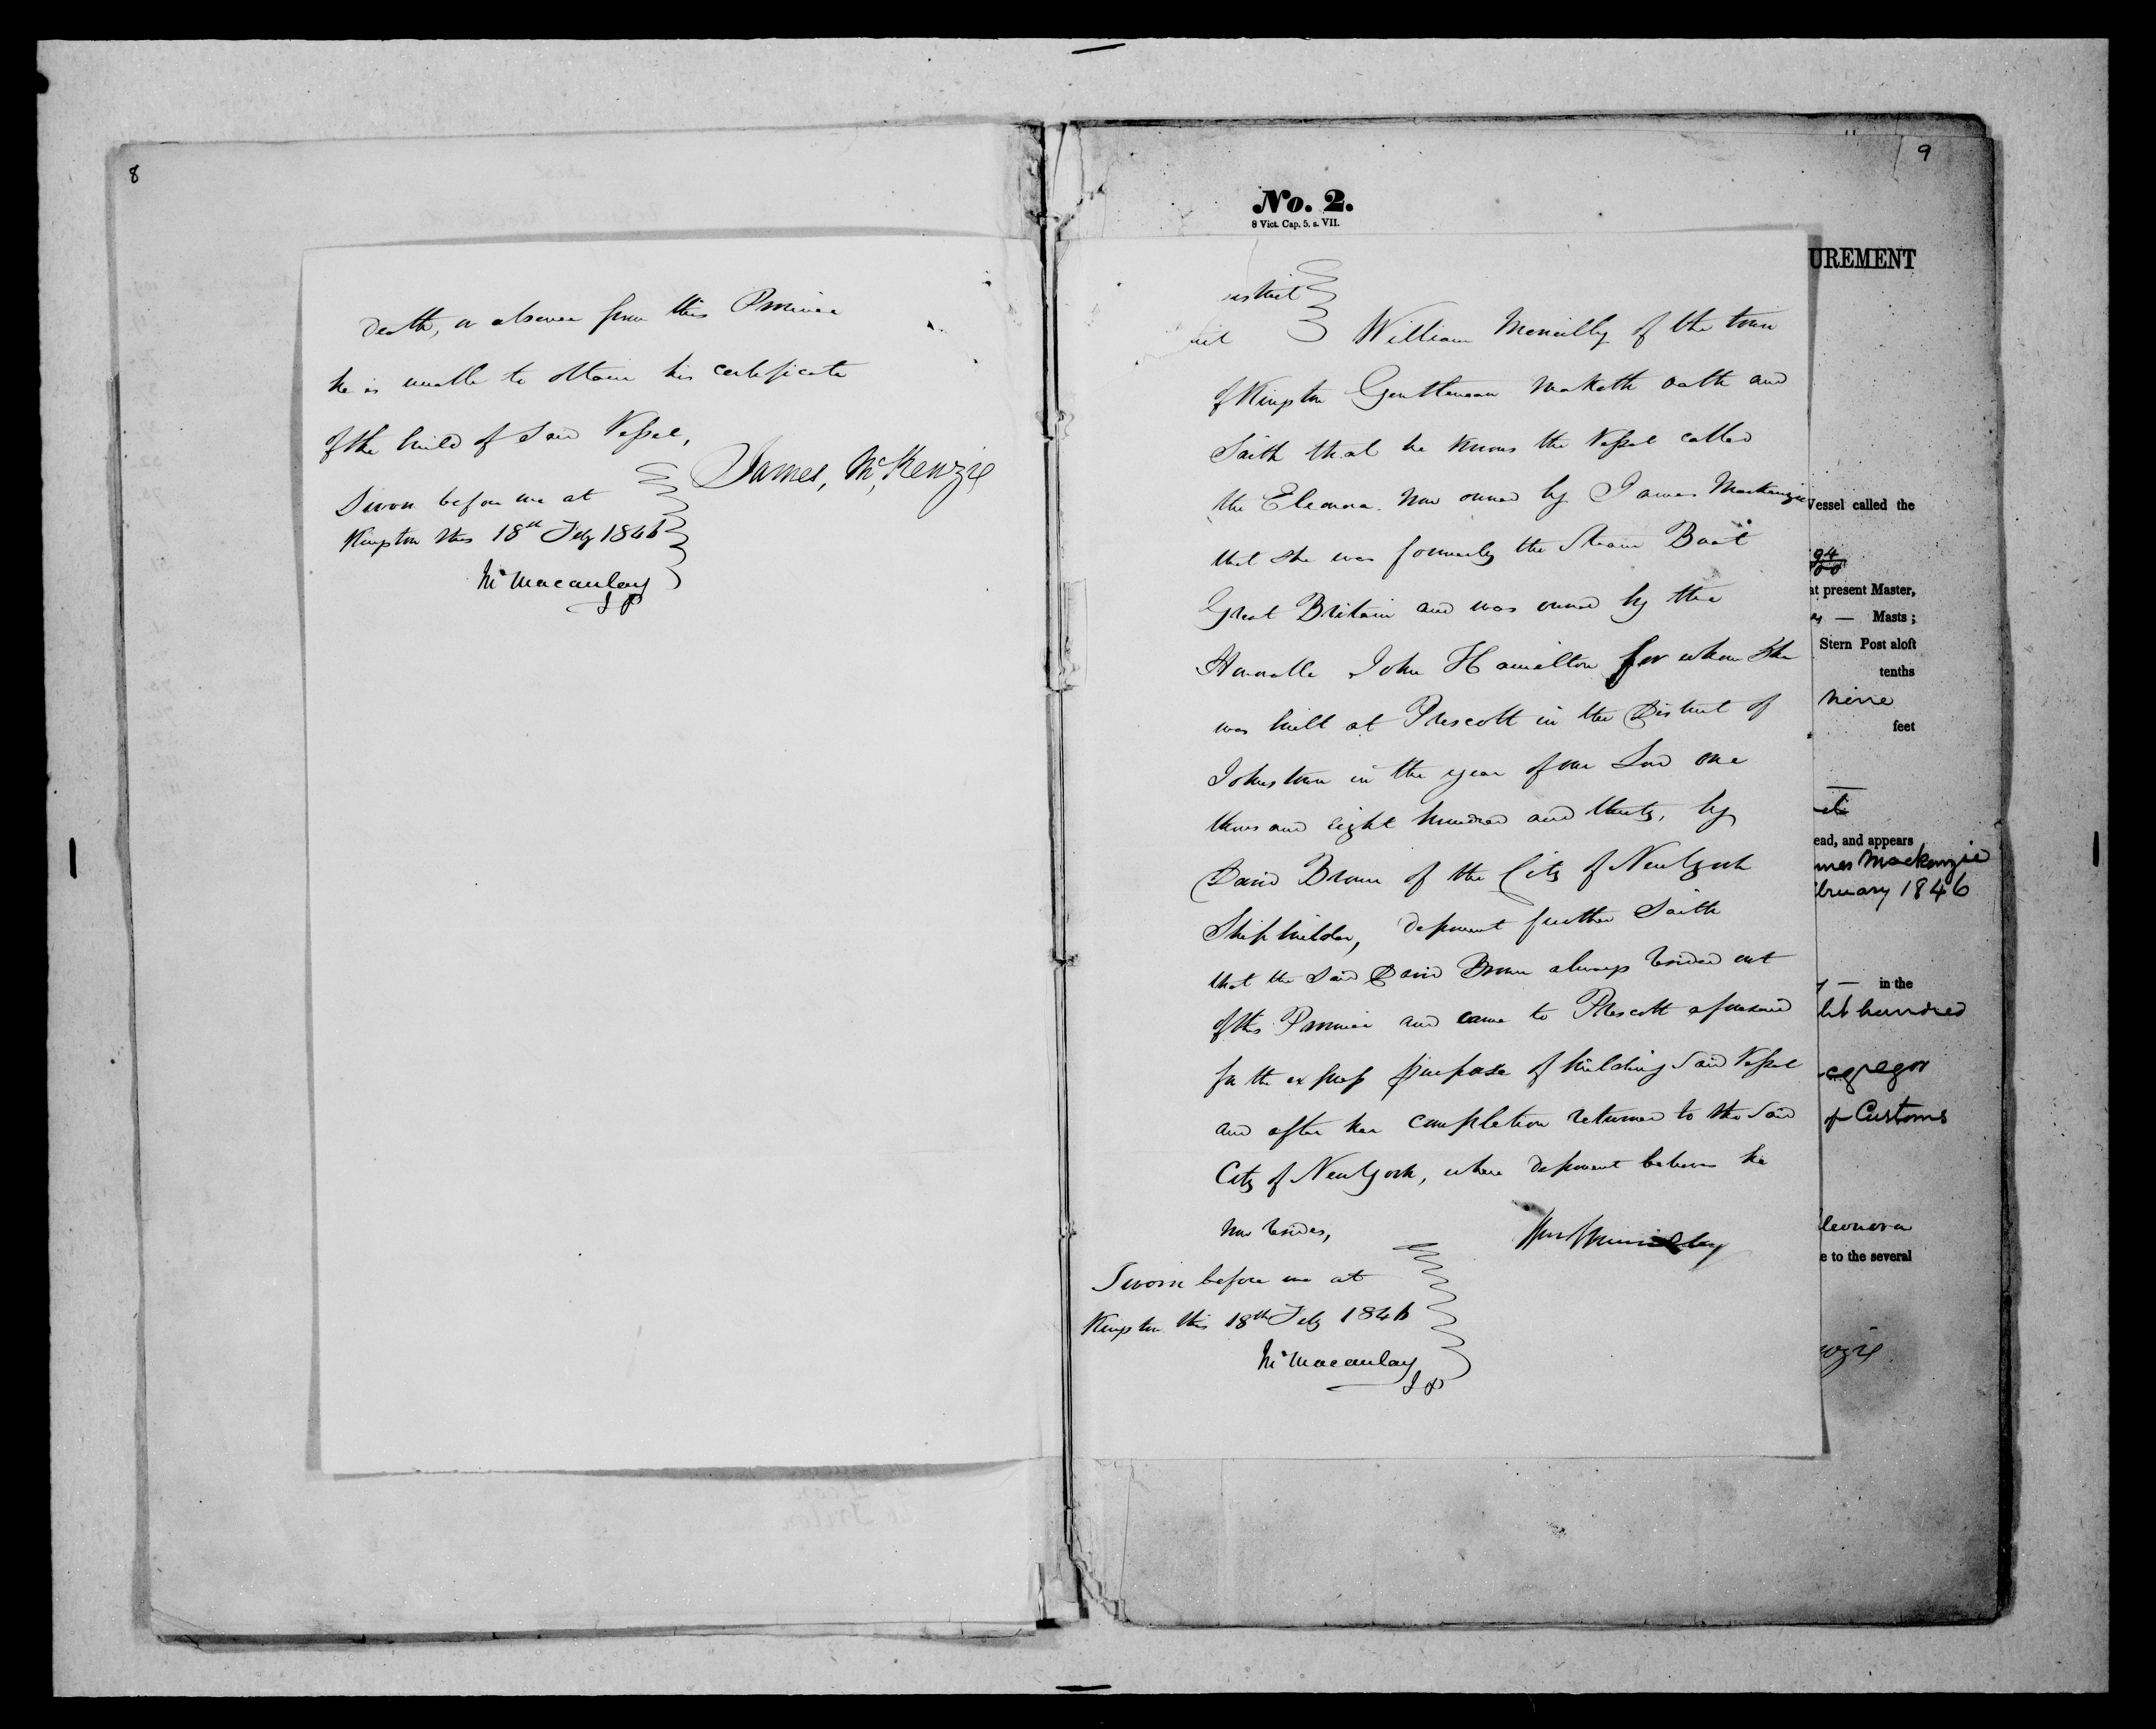 8
Death, or absence from this Province
he is unable to obtain his certificate
of the build of Said Vessel,
James, McKenzie
Sworn before me at
Kingston this 18th Feby 1846
Macaulay
J P
9
No. 2.
8 Vict. Cap. 5. s. VII.
UREMENT
istrict
William Meneilly of the town
of Kingston Gentleman Maketh oath and
Saith that he knows the Vessel called
the Eleonora. Now owned by James Mackenzie
that she was formerly the Steam Boat
Great Britain and was owned by the
Honorable John Hamilton for whom She
was built at Prescott in the District of
Johnstown in the year of our Lord one
thousand eight hundred and thirty, by
David Brown of the City of New York
Ship builder, deponent further Saith
that the Said David Brown always resided out
of this Province and came to Prescott aforesaid
for the express purpose of building Said Vessel
and after her completion returned to the Said
City of New York, where deponent believes he
now resides,
Sworn before me at
Kingston this 18th Feby 1846
Macaulay
J P
Vessel called the
94
at present Master,
— Masts ;
Stern Post aloft
tenths
nine
feet
ead, and appears
mes Mackenzie
bruary 1846
— in the
ht hundred
cgregor
of Customs
leonora
e to the several
nzie